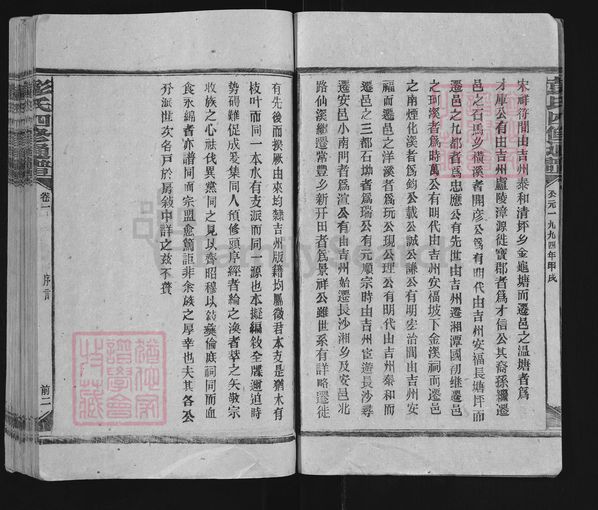 彭氏四修通譜
公元一九九四年甲戌
宋祥符間由吉州泰和清坪乡金龜塘而遷邑之温塘者爲
才庫公有由吉州盧陵漳源徙寶郡者爲才信公其裔孫 遷
邑之石馬乡橫溪者開彦公爲有明代由吉州安福長塘坪而
遷邑之九都者爲忠應公有先世由吉州遷湘潭國初継遷邑
之珂溪者爲時萬公有明代由吉州安福坡下金溪祠而遷邑
之南煙化溪者爲公載公誠公謙公有明宏治間由吉州安
福而遷邑之洋溪者爲玩公現公理公有明代由吉州泰和而
遷邑之三都石坳者爲瑞公有元順宗時由吉州宦遊長沙尋
遷安邑小南門者爲渲公有由吉州始遷長沙湘乡及安邑北
路仙溪継遷常豊乡新开田者爲景祥公雖世系有詳略遷徙
有先後而揆厥由來均隸吉州版籍均屬徵君本支是猶木有
枝叶而同一本水有支派而同一源也本擬編叙全牒迺迫時
勢碍難促成爰集同人預修頭序經者綸之涣者萃之矢敬宗
收族之心祛伐異黨同之見以齊昭穆以敍彝倫庶祠同而血
食永綿者亦譜同而宗盟愈篤詎非余族之厚幸也夫其各公
分派世次名戸於房叙中詳之茲不贅
彭氏四修通譜
卷二
序言
前二